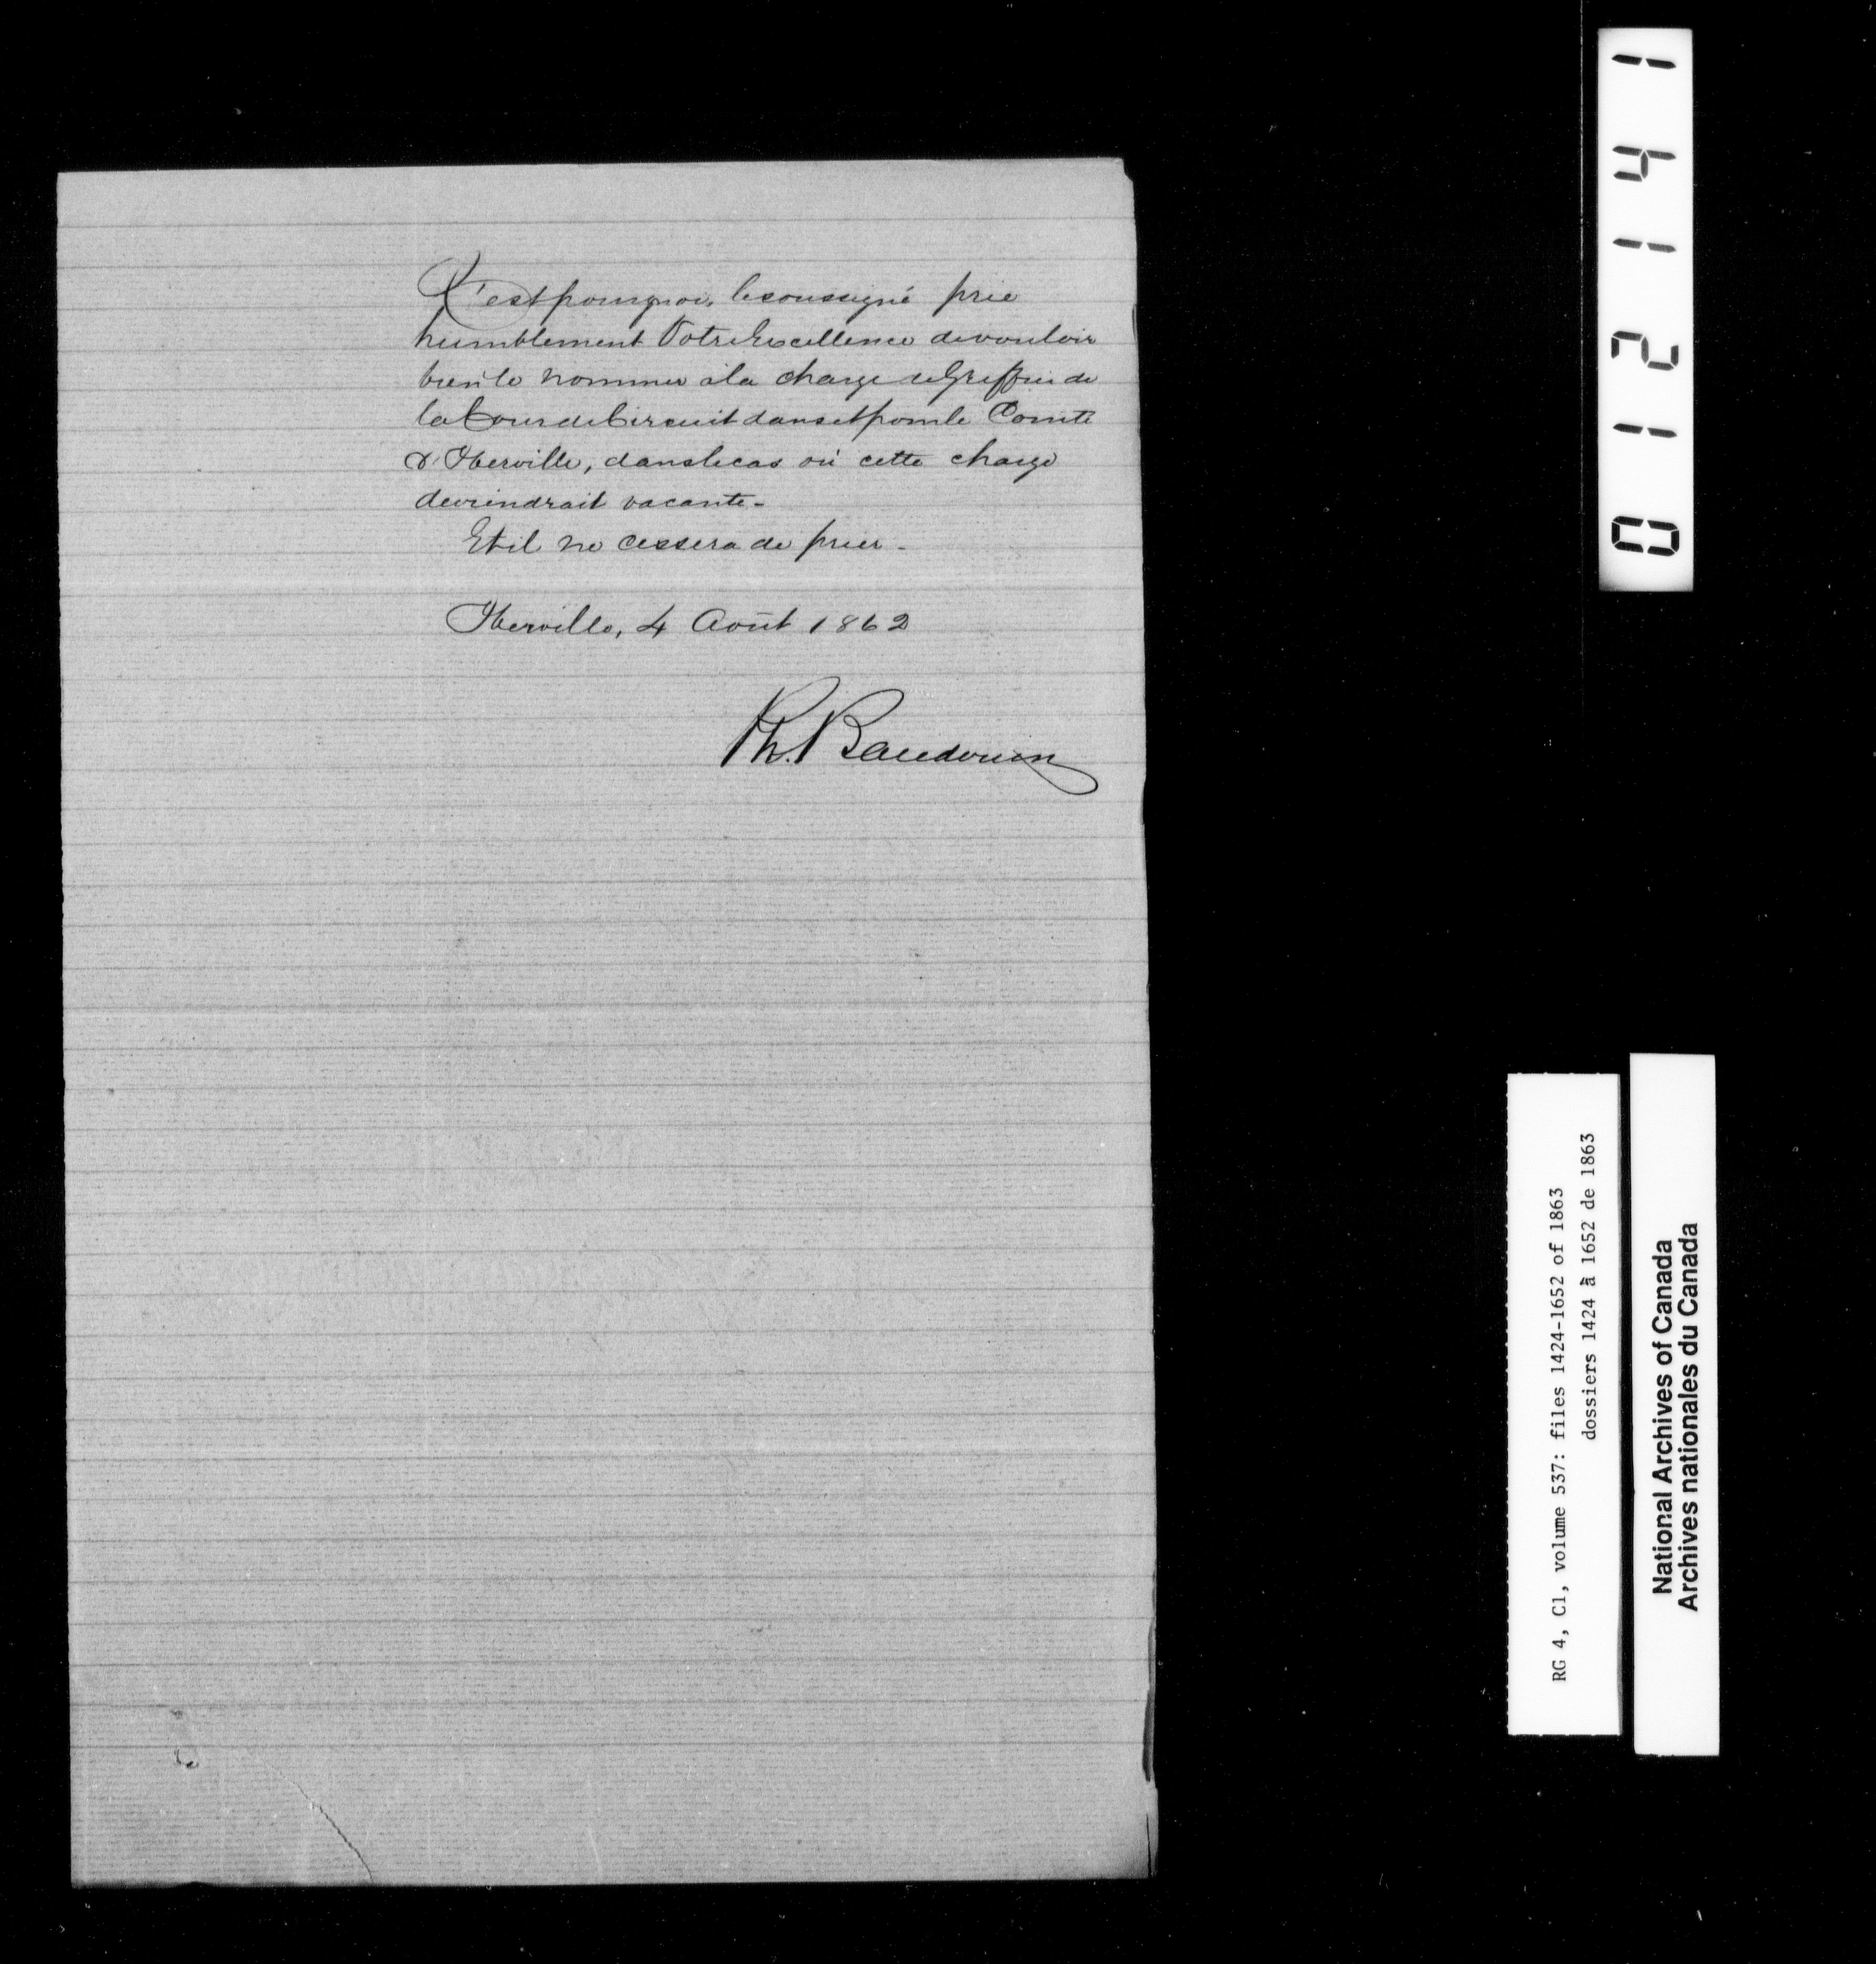 C'est pourquoi, le soussigné prie
humblement Votre Excellence de vouloir
bien le nommer à la charge de Greffier de
la Cour de Circuit dans et pour le Comté
d'Iberville, dans le cas où cette charge
deviendrait vacante.
Et il ne cessera de prier.
Iberville, 4 Août 1862
Ph. Baudouin
012141
RG 4, C1, volume 537: files 1424-1652 of 1863
dossiers 1424 à 1652 de 1863
National Archives of Canada
Archives nationales du Canada